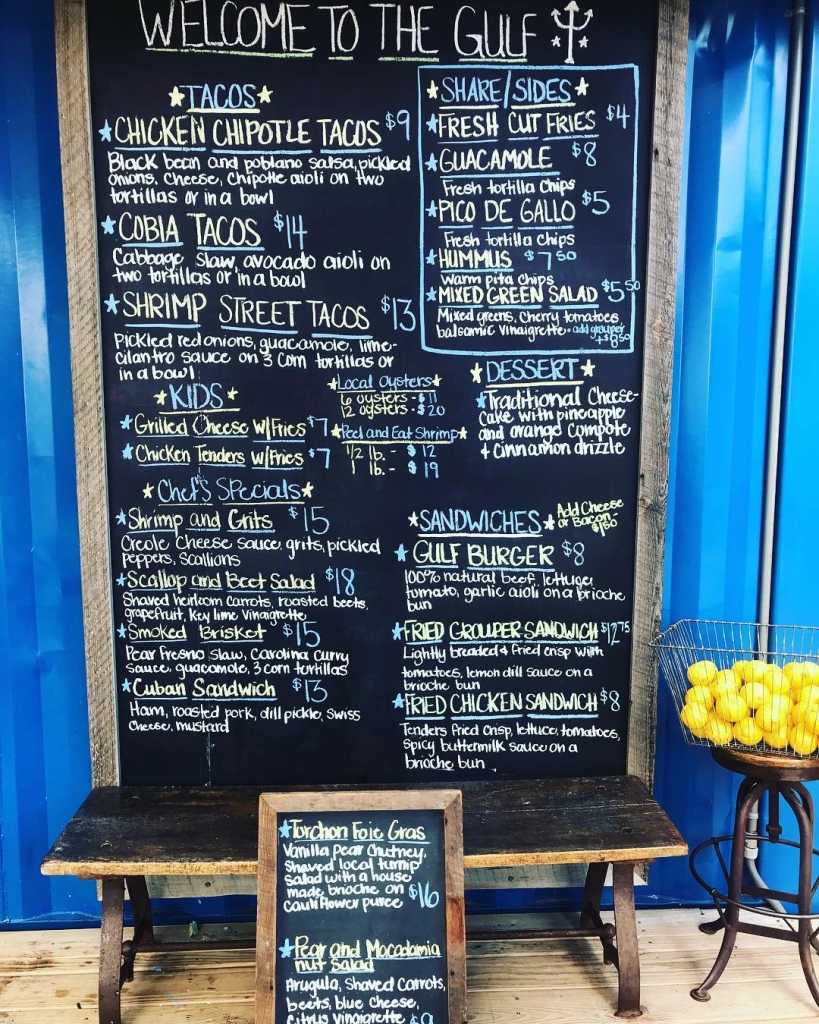 WELCOME TO THE GULF
TACOS
CHICKEN CHIPOTLE TACOS $9
Black bean and poblano salsa, pickled
onions, cheese, Chipotle aioli on two
tortillas or in a bowl
COBIA TACOS $14
Cabbage slaw, avocado aioli on
two tortillas or in a bowl
SHRIMP STREET TACOS $13
Pickled red onions, guacamole, lime-
cilantro sauce on 3 corn tortillas or
in a bowl
SHARE/SIDES
FRESH CUT FRIES $4
GUACAMOLE $8
Fresh tortilla chips
PICO DE GALLO $5
Fresh tortilla chips
HUMMUS $7.50
Warm pita chips
MIXED GREEN SALAD $5.50
Mixed greens, cherry tomatoes
balsamic vinaigrette - add grouper
+$8.50
KIDS
Grilled Cheese w/Fries $7
Chicken Tenders w/Fries $7
Local Oysters
6 oysters - $11
12 oysters - $20
Peel and Eat Shrimp
1/2 lb. - $12
1 lb. - $19
DESSERT
Traditional Cheese-
cake with pineapple
and orange compote
& cinnamon drizzle
Chef's Specials
Shrimp and Grits $15
Creole Cheese sauce, grits, pickled
peppers, scallions
Scallop and Beet Salad $18
Shaved heirloom carrots, roasted beets,
grapefruit, key lime vinaigrette
Smoked Brisket $15
Pear Fresno slaw, Carolina curry
sauce, guacamole, 3 corn tortillas
Cuban Sandwich $13
Ham, roasted pork, dill pickle, swiss
cheese, mustard
SANDWICHES
Add Cheese
or Bacon
$1.50
GULF BURGER $8
100% natural beef, lettuce,
tomato, garlic aioli on a brioche
bun
FRIED GROUPER SANDWICH $12.75
Lightly breaded & fried crisp with
tomatoes, lemon dill sauce on a
brioche bun
FRIED CHICKEN SANDWICH $8
Tenders fried crisp, lettuce, tomatoes,
spicy buttermilk sauce on a
brioche bun
Torchon Foie Gras
Vanilla Pear Chutney,
shaved local turnip
salad with a house
made brioche on
cauliflower puree $16
Pear and Macadamia
nut Salad
Arugula, Shaved Carrots,
beets, blue cheese,
citrus vinaigrette $9